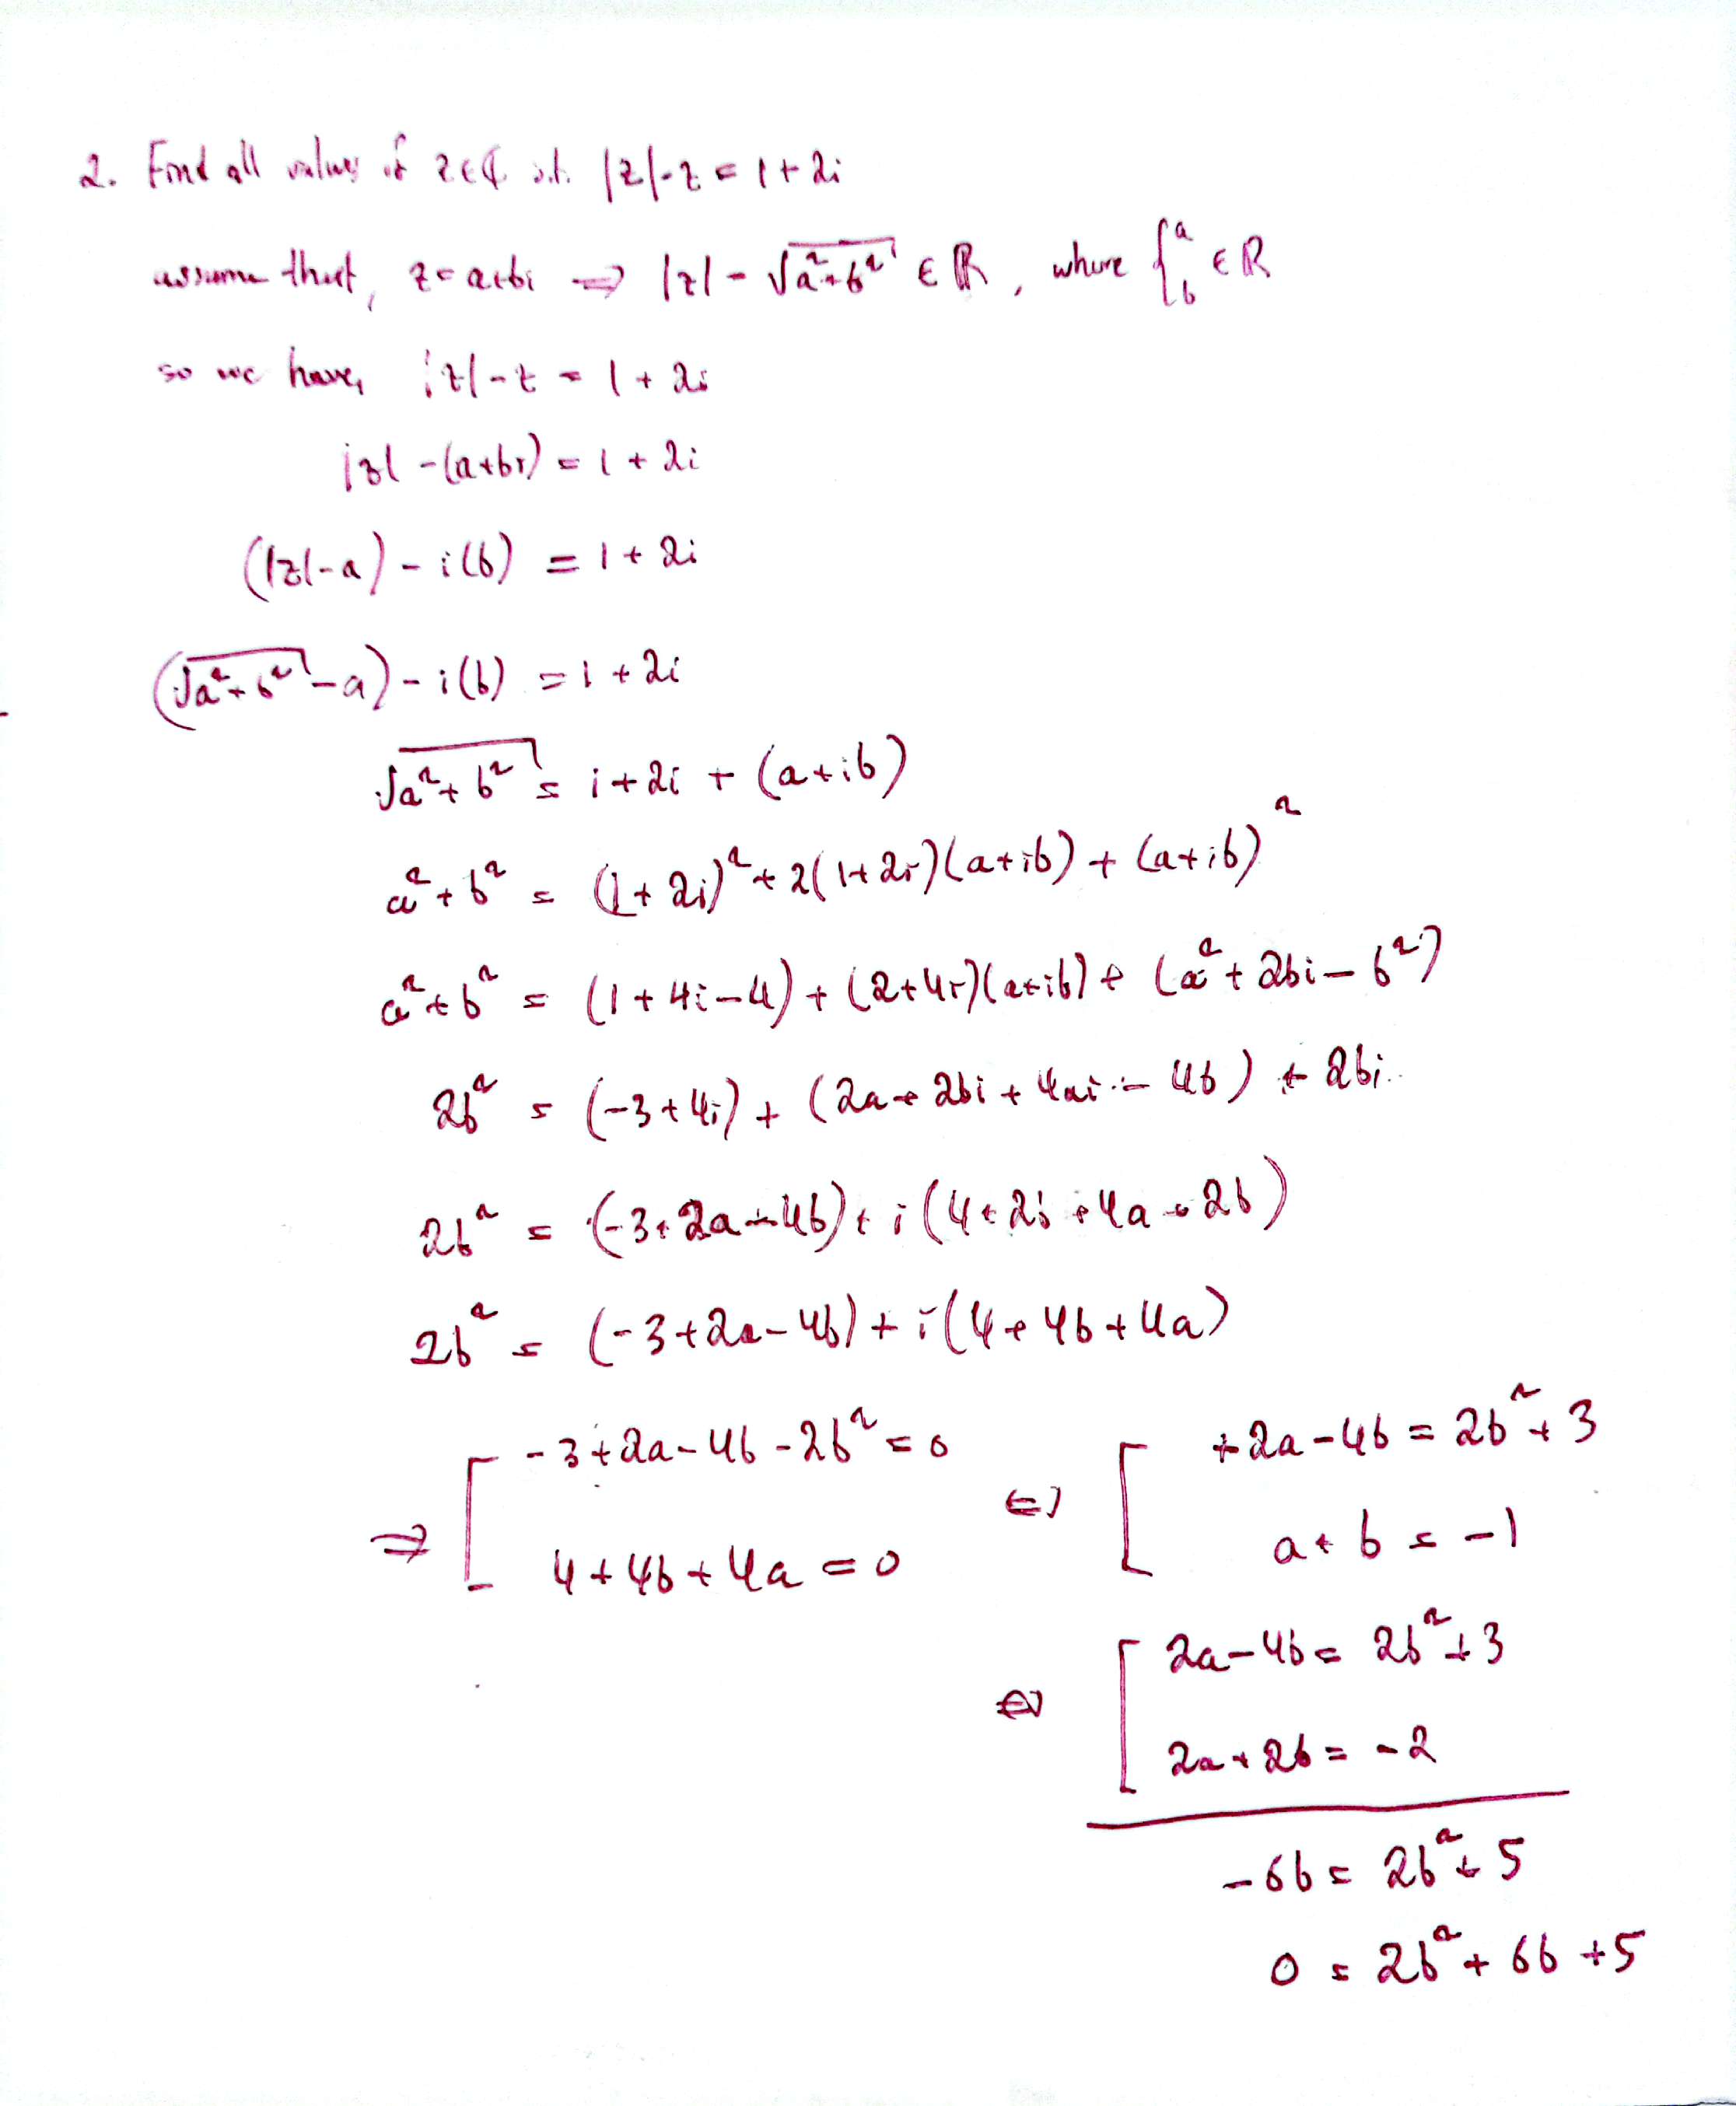 2. Find all values of z∈ℂ s.t. |z|-z = 1+2i
assume that, z = a+bi ⇒ |z| = √(a²+b²) ∈ ℝ, where {a b ∈ ℝ
so we have, |z|-z = 1+2i
|z| -(a+bi) = 1+2i
(|z|-a) - i(b) = 1+2i
(√(a²+b²) -a) - i(b) = 1+2i
√(a²+b²) = i+2i + (a+ib)
a²+b² = (1+2i)² + 2(1+2i)(a+ib) + (a+ib)²
a²+b² = (1+4i-4) + (2+4i)(a+ib) + (a²+2bi-b²)
2b² = (-3+4i) + (2a+2bi+4ai-4b) + 2bi
2b² = (-3+2a-4b) + i(4+2b+4a+2b)
2b² = (-3+2a-4b) + i(4+4b+4a)
⇒ [ -3+2a-4b-2b² = 0 ⇔ [ +2a-4b = 2b²+3
4+4b+4a = 0 a+b = -1
⇔ [ 2a-4b = 2b²+3
2a+2b = -2
-6b = 2b²+5
0 = 2b²+6b+5